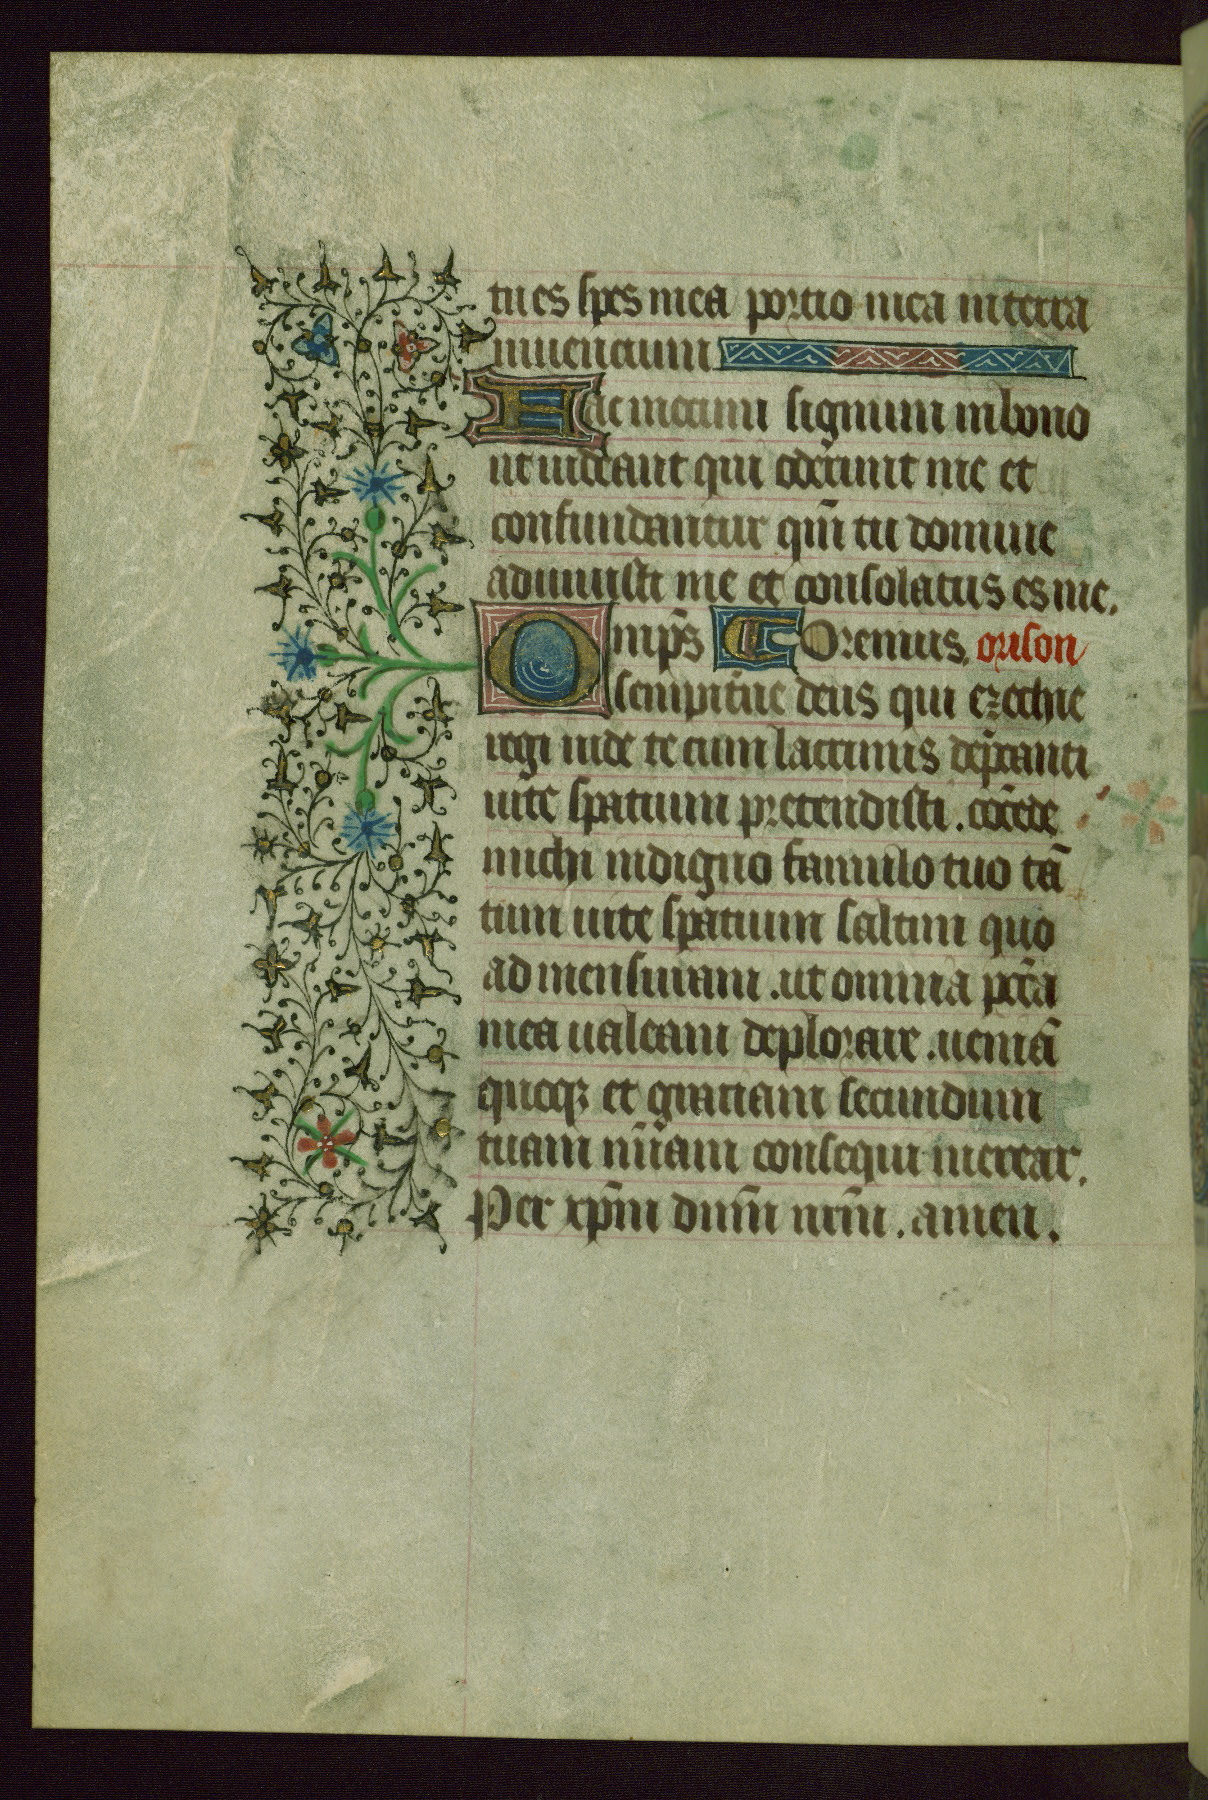 tu es spes mea portio mea in terra
uiuencium
Fac mecum signum in bono
ut uideant qui oderunt me et
confundantur qm̄ tu domine
adiuuisti me et consolatus es me.
Omp̄s Oremus. orison
sempiterne deus qui ezechie
regi iude te cum lacrimis dep̄canti
uite spatium pretendisti. cōcede
michi indigno famulo tuo tā
tum uite spatium saltim quo
ad mensuram .ut omnia pc̄ca
mea ualeam deplorare .ueniā
queqꝫ et gratiam secundum
tuam mīam consequi merear.
Per xp̄m dnm̄ nrm̄ . amen.